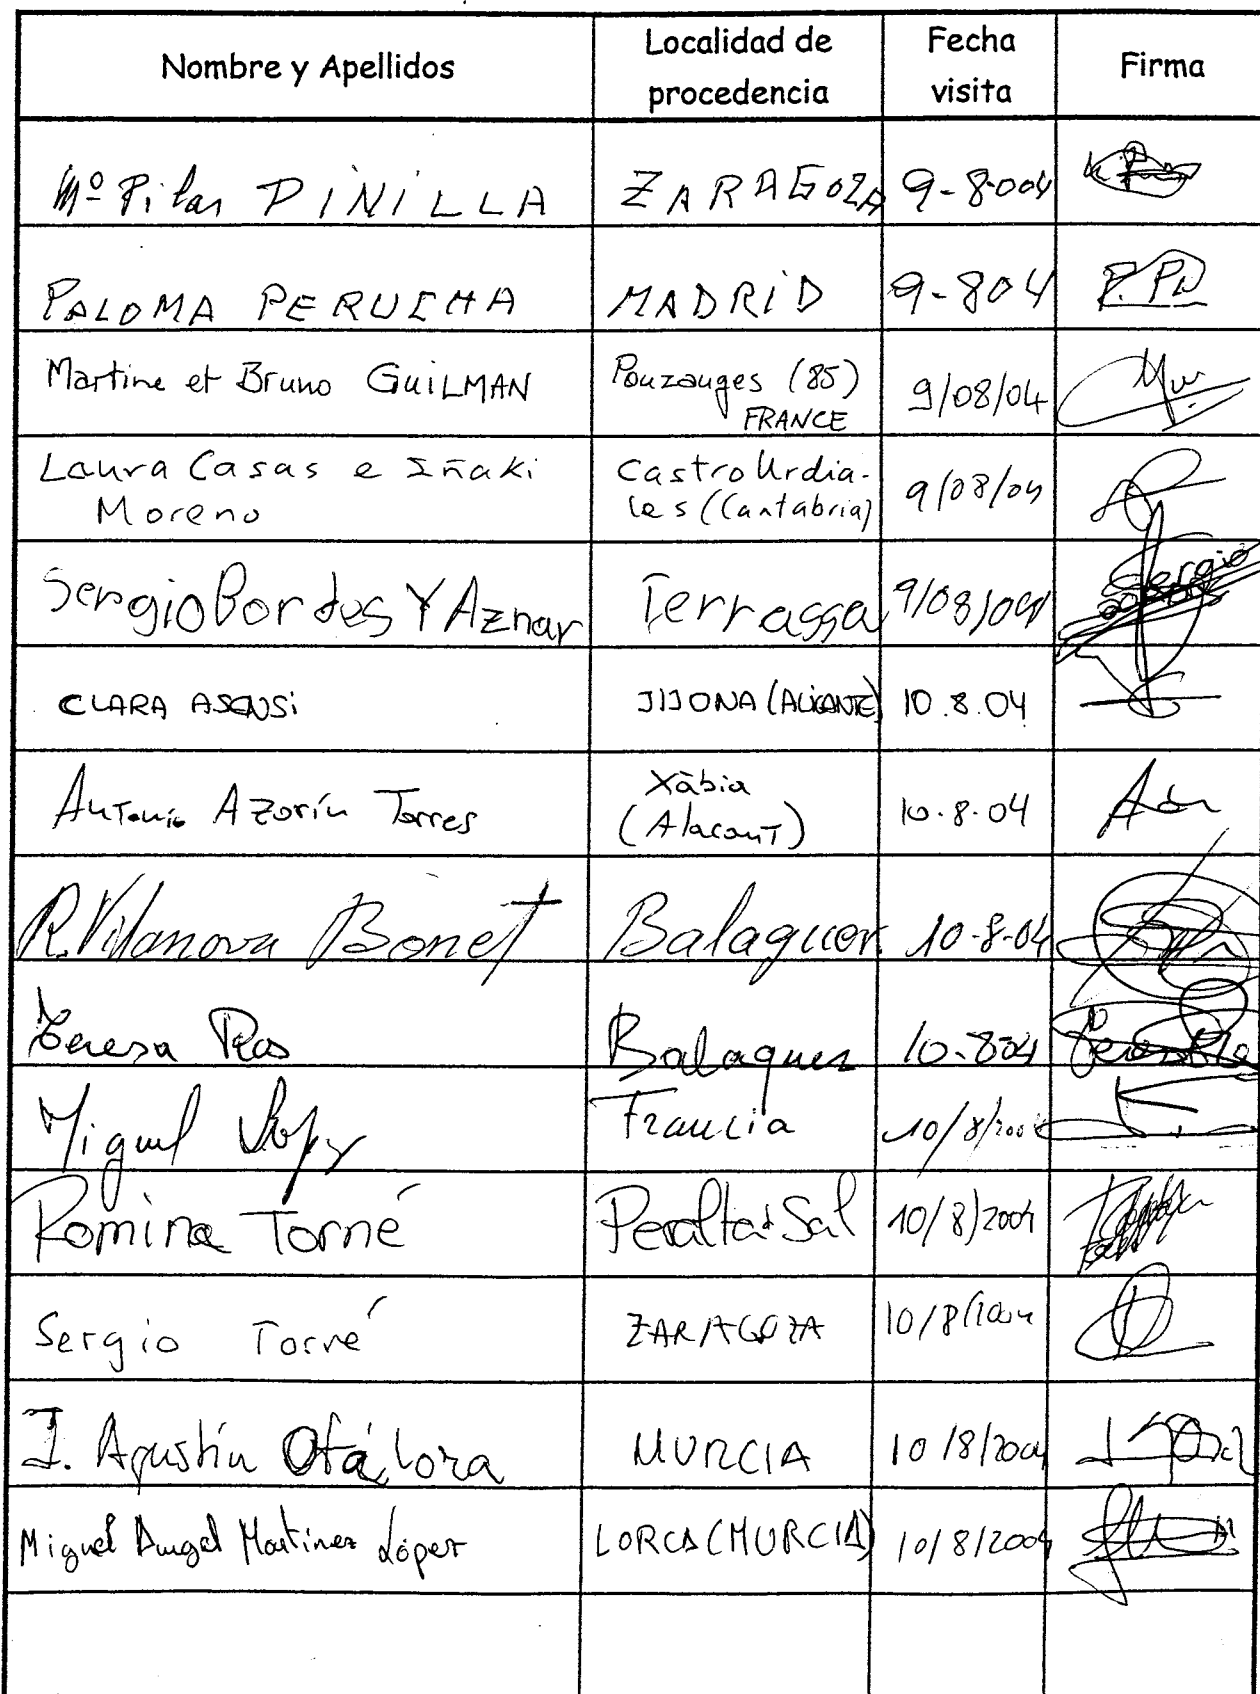 Nombre y Apellidos
Localidad de procedencia
Fecha visita
Firma
Mº Pilar PINILLA ZARAGOZA 9-8-004
PALOMA PERUCHA MADRID 9-804 P.
Martine et Bruno GUILMAN Pouzauges (85) FRANCE 9/08/04
Laura Casas e Iñaki Moreno Castro Urdiales (Cantabria) 9/08/04
Sergio Bordes Y Aznar Terrassa 9/08/04 Sergio
CLARA ASENSi JIJONA (ALICANTE) 10.8.04
Antonio Azorín Torres Xàbia (Alacant) 10.8.04
R. Vilanova Bonet Balaguer. 10-8-04
Teresa Ros Balaguer 10-804
Miguel Francia 10/8/2004
Romina Torné Peralta Sal 10/8/2004
Sergio Torné ZARAGOZA 10/8/2004
J. Agustín Otálora MURCIA 10/8/2004
Miguel Angel Martinez López LORCA (MURCIA) 10/8/2004